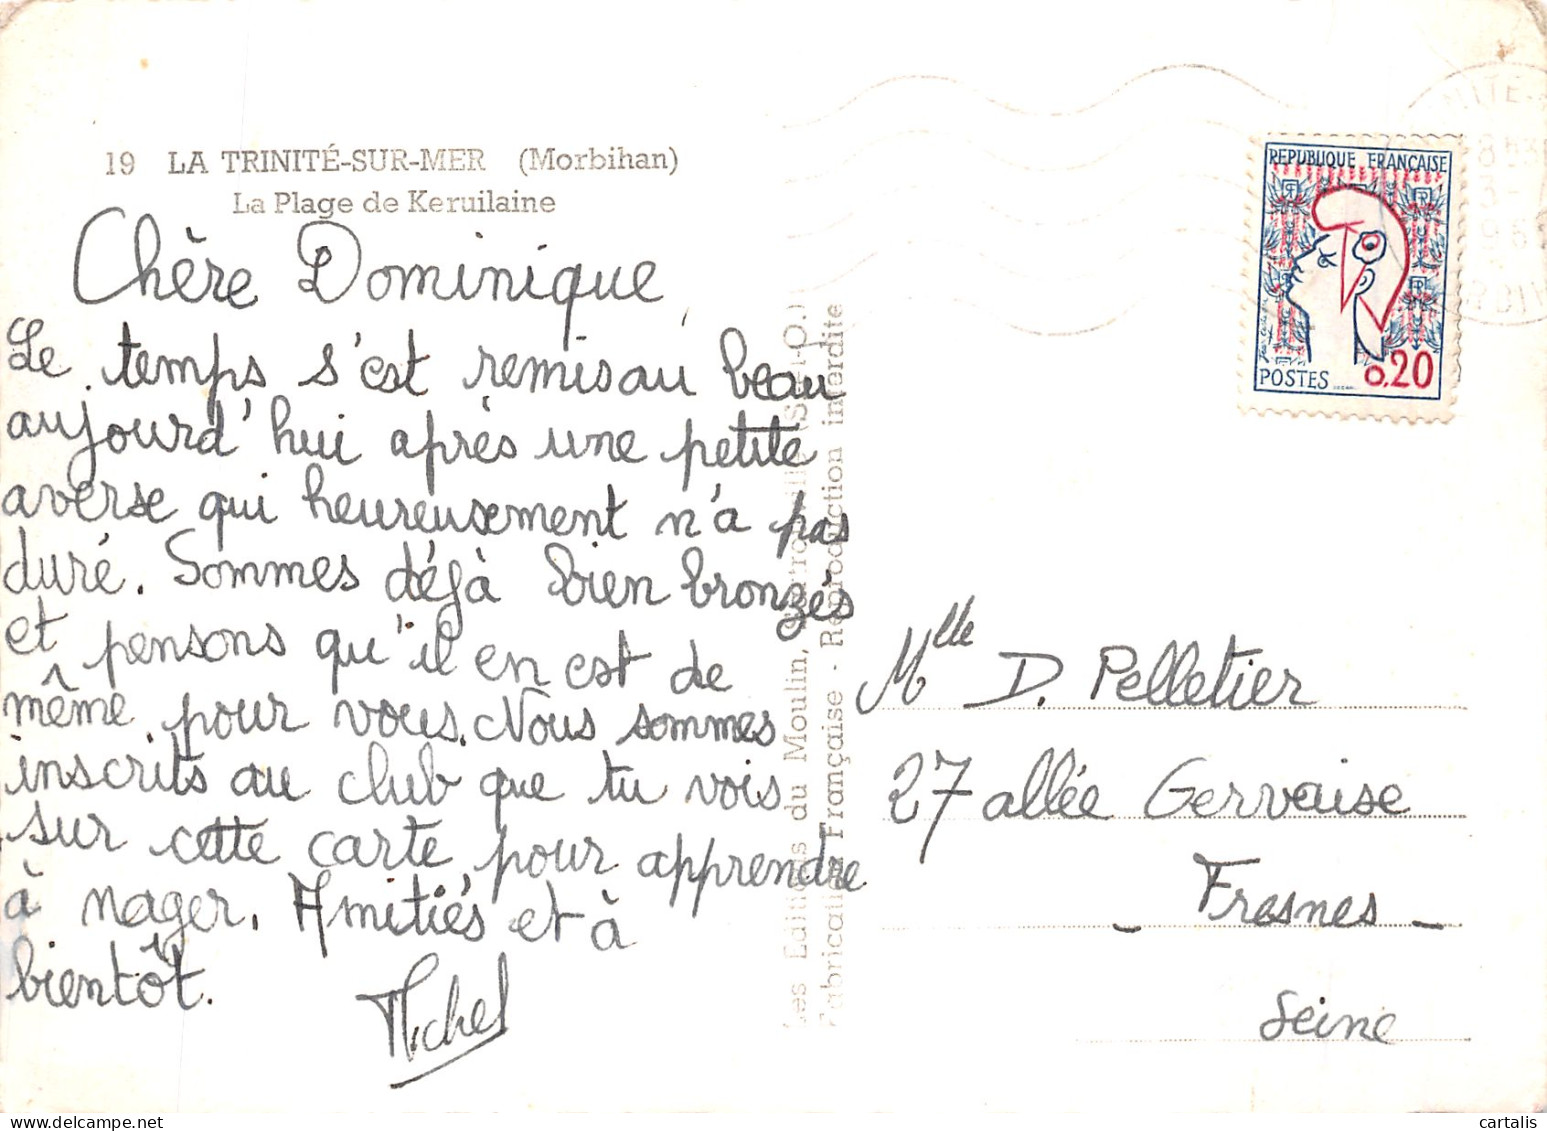 19 LA TRINITÉ-SUR-MER (Morbihan)
La Plage de Keruilaine
Chère Dominique,
Le temps s'est remis au beau
aujourd'hui après une petite
averse qui heureusement n'a pas
duré. Sommes déjà bien bronzés
et pensons qu'il en est de
même pour vous. Nous sommes
inscrits au club que tu vois
sur cette carte pour apprendre
à nager. Amitiés et à
bientôt.
Michel
Les Editions du Moulin, (S.-et-O.)
Fabrication Française - Reproduction interdite
REPUBLIQUE FRANÇAISE
POSTES 0,20
Mlle D. Pelletier
27 allée Gervaise
- Fresnes -
Seine
cartalis